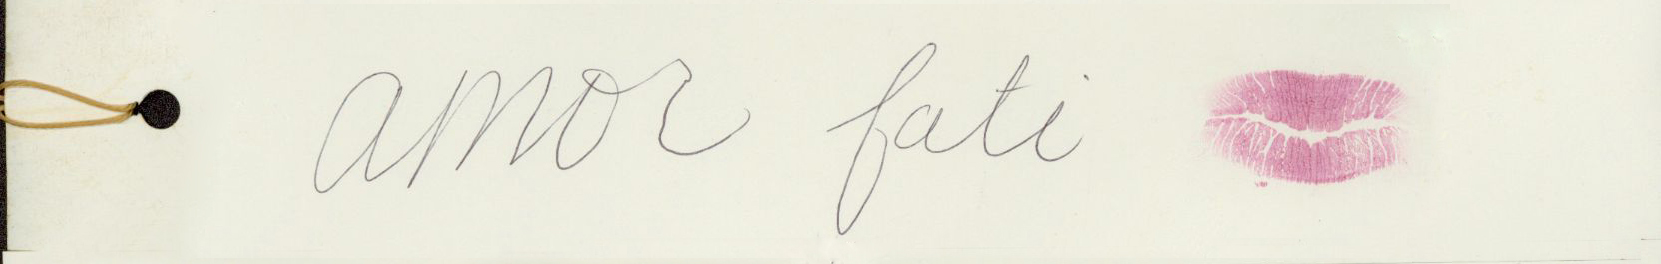 amor fati